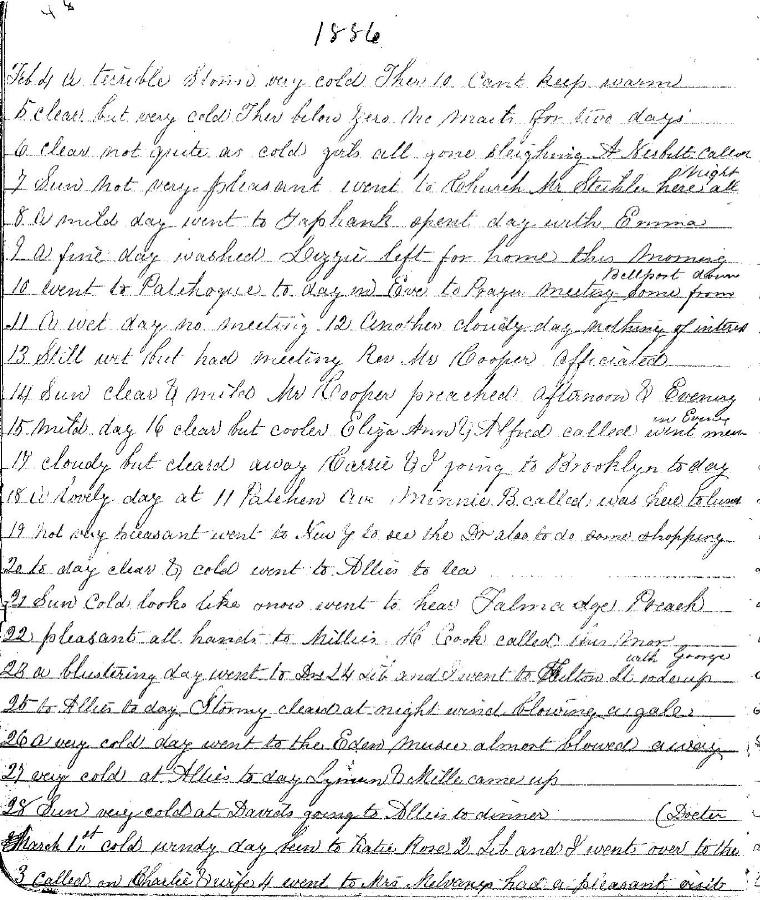 48
1886
Feb 4 a terrible Storm very cold Ther 10 Cant keep warm
5 clear but very cold Ther below Zero no mails for two days
6 clear not quite as cold girls all gone sleighing A Nesbitt called
7 Sun not very pleasant went to Church Mr Stehler here all night
8 A mild day went to Yaphank spent day with Emma
9 A fine day washed Lizzie left for home this Morning
10 went to Patchogue to day in Eve to Prayer Meeting some from Bellport down
11 A wet day no meeting 12 Another cloudy day nothing of interes
13 Still wet but had meeting Rev Mr Cooper officiated
14 Sun clear & mild Mr Cooper preached afternoon & Evening
15 Mild day 16 clear but cooler Eliza Ann & Alfred called in Evening went
17 cloudy but cleard away Carrie & I going to Brooklyn to day
18 A lovely day at 11 Patchen Ave Minnie B. called was here to lunch
19 not very pleasant went to New Y to see the Dr also to do some shopping
20 to day clear & cold went to Allies to tea
21 Sun Cold looks like snow went to hear Talmadge Preach
22 pleasant all hands to Millies H Cook called this Mor
23 a blustering day went to Drs 24 Lib and I went to Fulton St rode up with George
25 to Allies to day Stormy cleard at night wind blowing a gale
26 a very cold day went to the Eden Musee almost blowed away
27 very cold at Allies to day Lyman & Mille came up
28 Sun very cold at Davids going to Allies to dinner (Docter
March 1st cold windy day been to Katie Rose 2 Lib and I went over to the
3 called on Charlie & wife 4 went to Mrs Melvanys had a pleasant visit